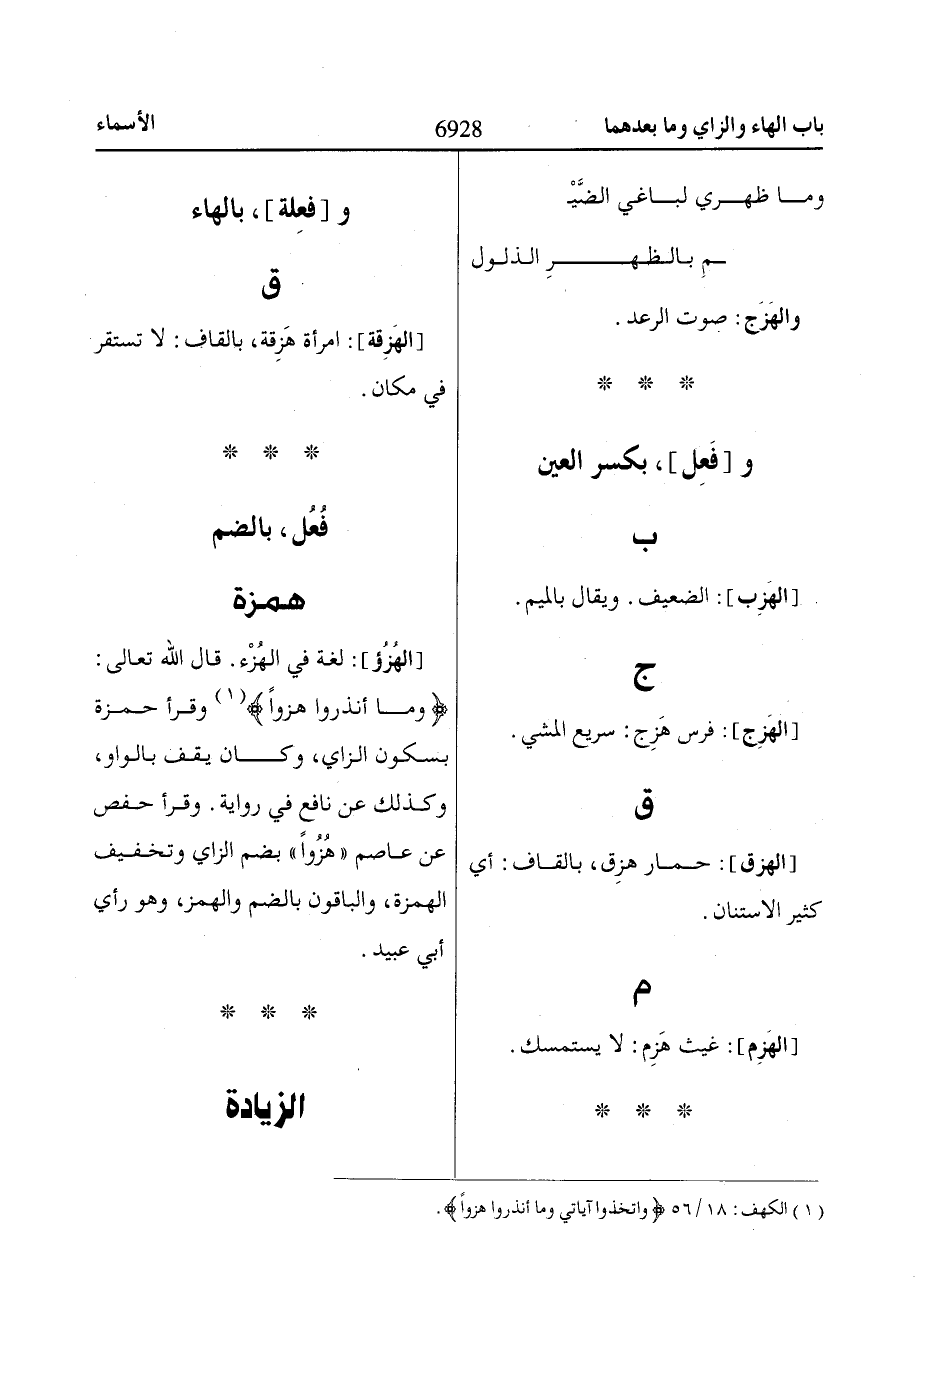 باب الهاء والزاي وما بعدهما 6928 الأسماء
ومــا ظهــري لبــاغي الضَّيْـ
ـمِ بالظهــرِ الذلول
والهَزَج: صوت الرعد.
* * *
و [فَعِل]، بكسر العين
ب
[الهَزِب]: الضعيف. ويقال بالميم.
ج
[الهَزِج]: فرس هَزِج: سريع المشي.
ق
[الهزِق]: حمار هزِق، بالقاف: أي
كثير الاستنان.
م
[الهَزِم]: غيث هَزِم: لا يستمسك.
* * *
و [فعِلة]، بالهاء
ق
[الهَزِقة]: امرأة هَزِقة، بالقاف: لا تستقر
في مكان.
* * *
فُعُل، بالضم
همزة
[الهُزُؤ]: لغة في الهُزْء. قال الله تعالى:
﴿وما أنذروا هزواً﴾(١) وقرأ حمزة
بسكون الزاي، وكان يقف بالواو،
وكذلك عن نافع في رواية. وقرأ حفص
عن عاصم «هُزُواً» بضم الزاي وتخفيف
الهمزة، والباقون بالضم والهمز، وهو رأي
أبي عبيد.
* * *
الزيادة
(١) الكهف: ١٨/٥٦ ﴿واتخذوا آياتي وما أنذروا هزواً﴾.